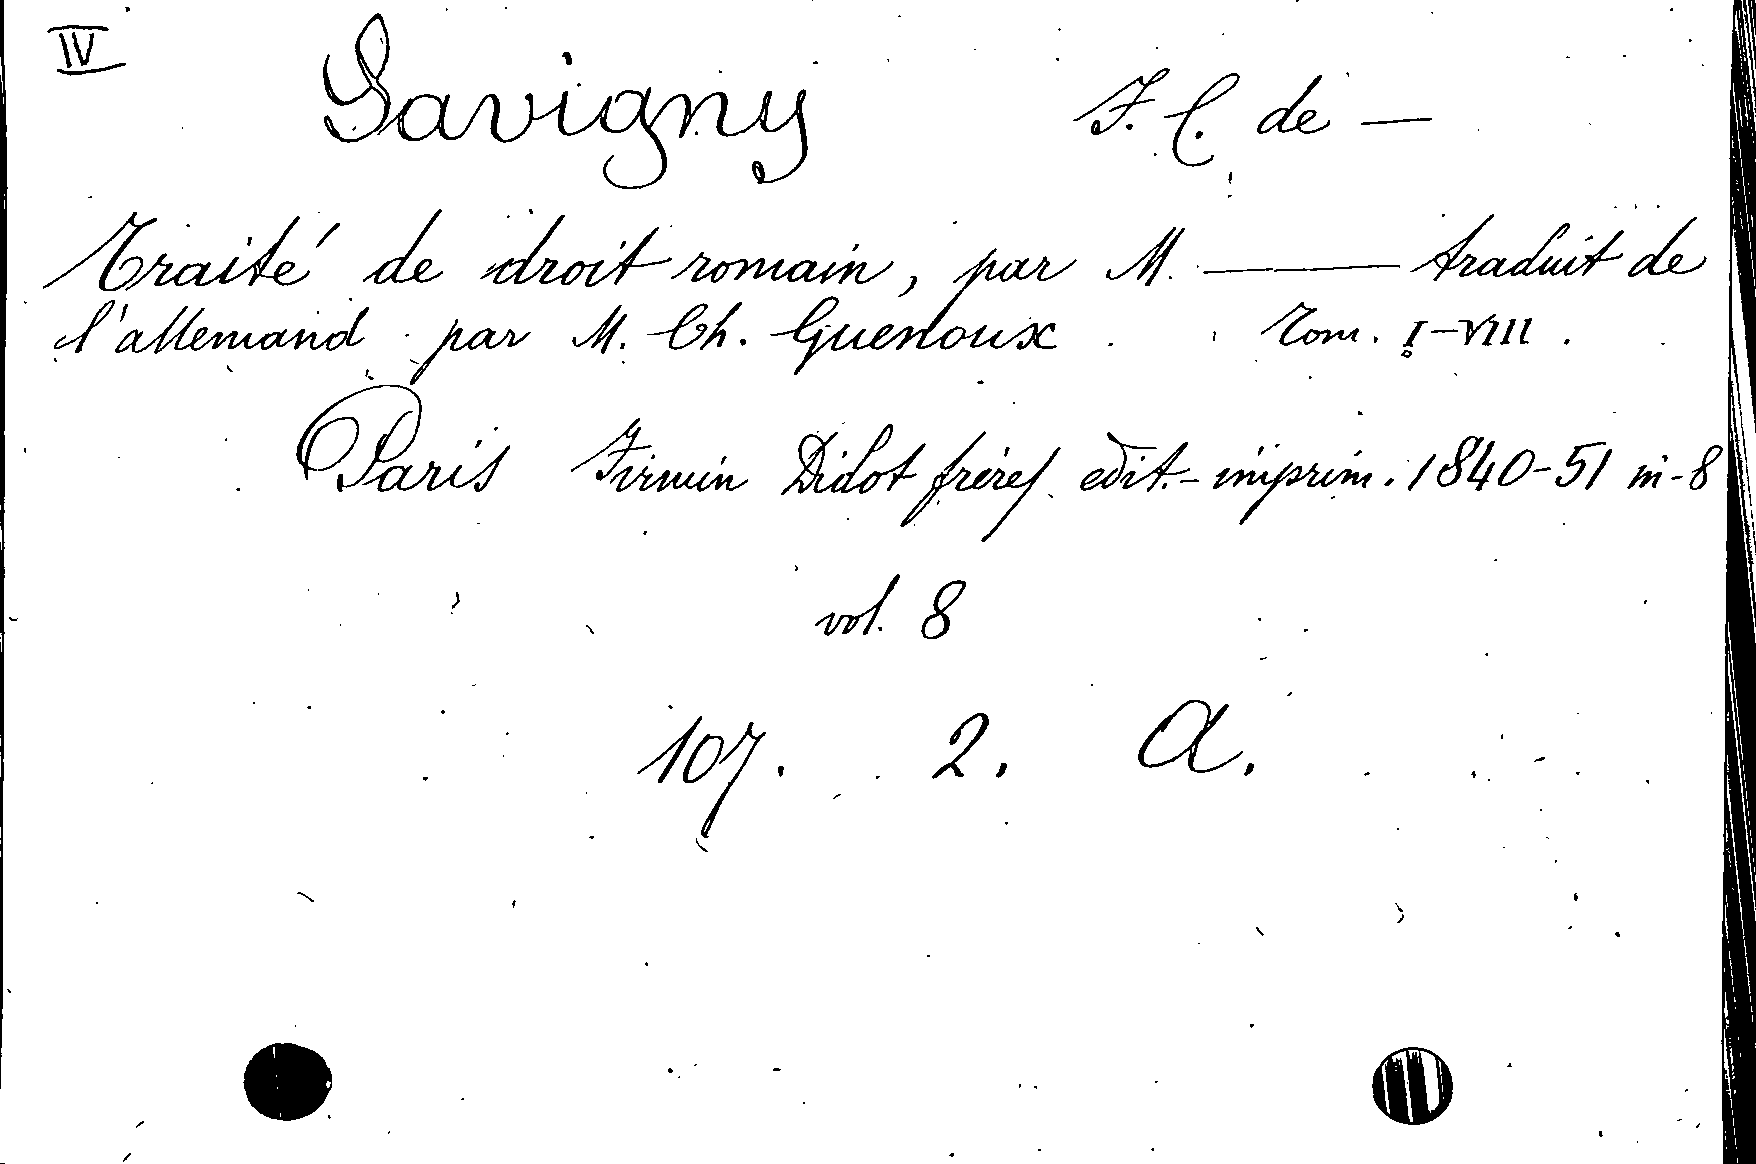 IV
Savigny F. C. de —
Traité de droit romain, par M. ——— traduit de
l'allemand par M. Ch. Guenoux Tom. I–VIII.
Paris Firmin Didot frères edit.- imprim. 1840-51 in-8
vol. 8
107. 2. a.